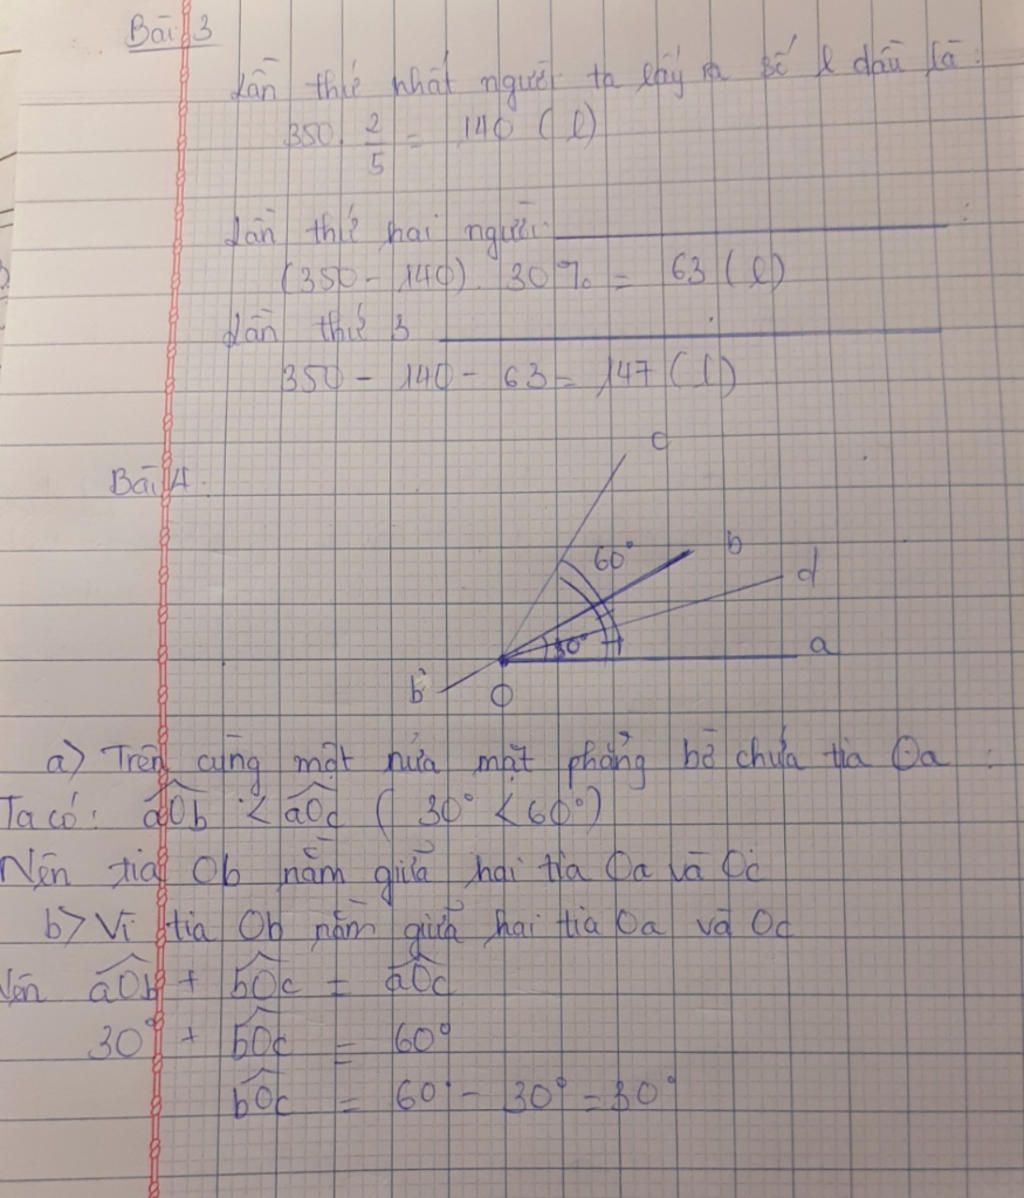 Bài 3
Lần thứ nhất người ta lấy ra số l dầu là:
350. 2/5 = 140 (l)
Lần thứ hai người :
(350 - 140). 30% = 63 (l)
Lần thứ 3
350 - 140 - 63 = 147 (l)
Bài 4.
c
60°
b
d
30°
a
b'
O
a) Trên cùng một nửa mặt phẳng bờ chứa tia Oa :
Ta có: aOb < aOc ( 30° < 60°)
Nên tia Ob nằm giữa hai tia Oa và Oc
b) Vì tia Ob nằm giữa hai tia Oa và Oc
Nên aOb + bOc = aOc
30° + bOc = 60°
bOc = 60° - 30° = 30°